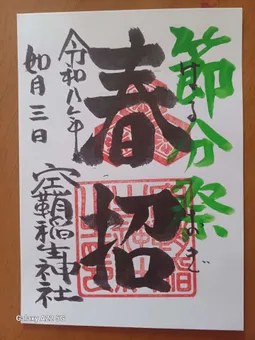 節分祭
春招
令和八年
如月三日
空鞘稲生神社
Galaxy A22 5G